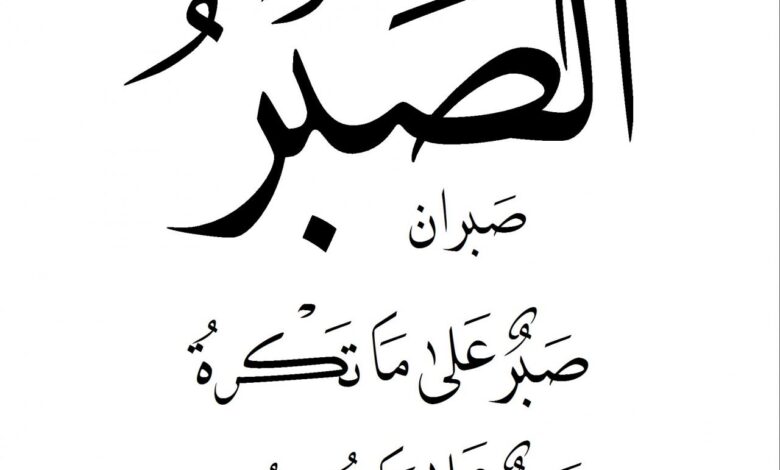 الصَبرُ
صَبران
صَبرٌ عَلىٰ مَا تَكْرهُ